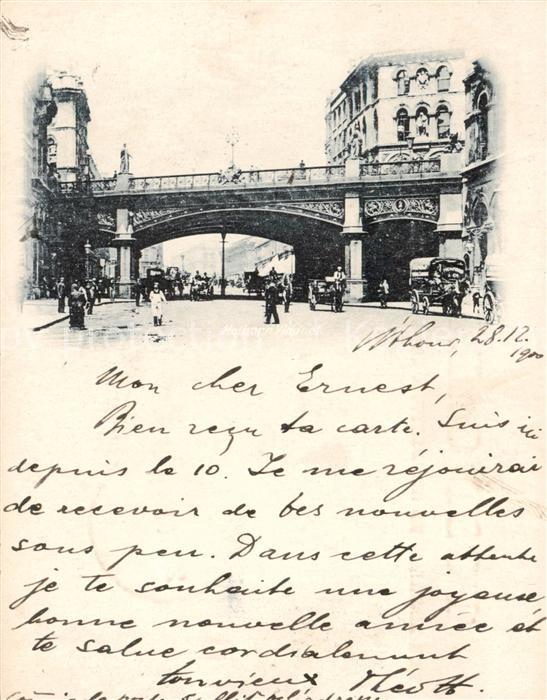 Holborn Viaduct
28.12.
1900
Mon cher Ernest,
Bien reçu ta carte. Suis ici
depuis le 10. Je me réjouirai
de recevoir de tes nouvelles
sous peu. Dans cette attente
je te souhaite une joyeuse
bonne nouvelle année et
te salue cordialement
ton vieux